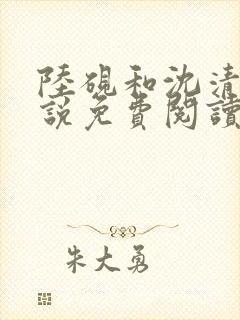 陸硯和沈清
說免費閱讀
朱大勇